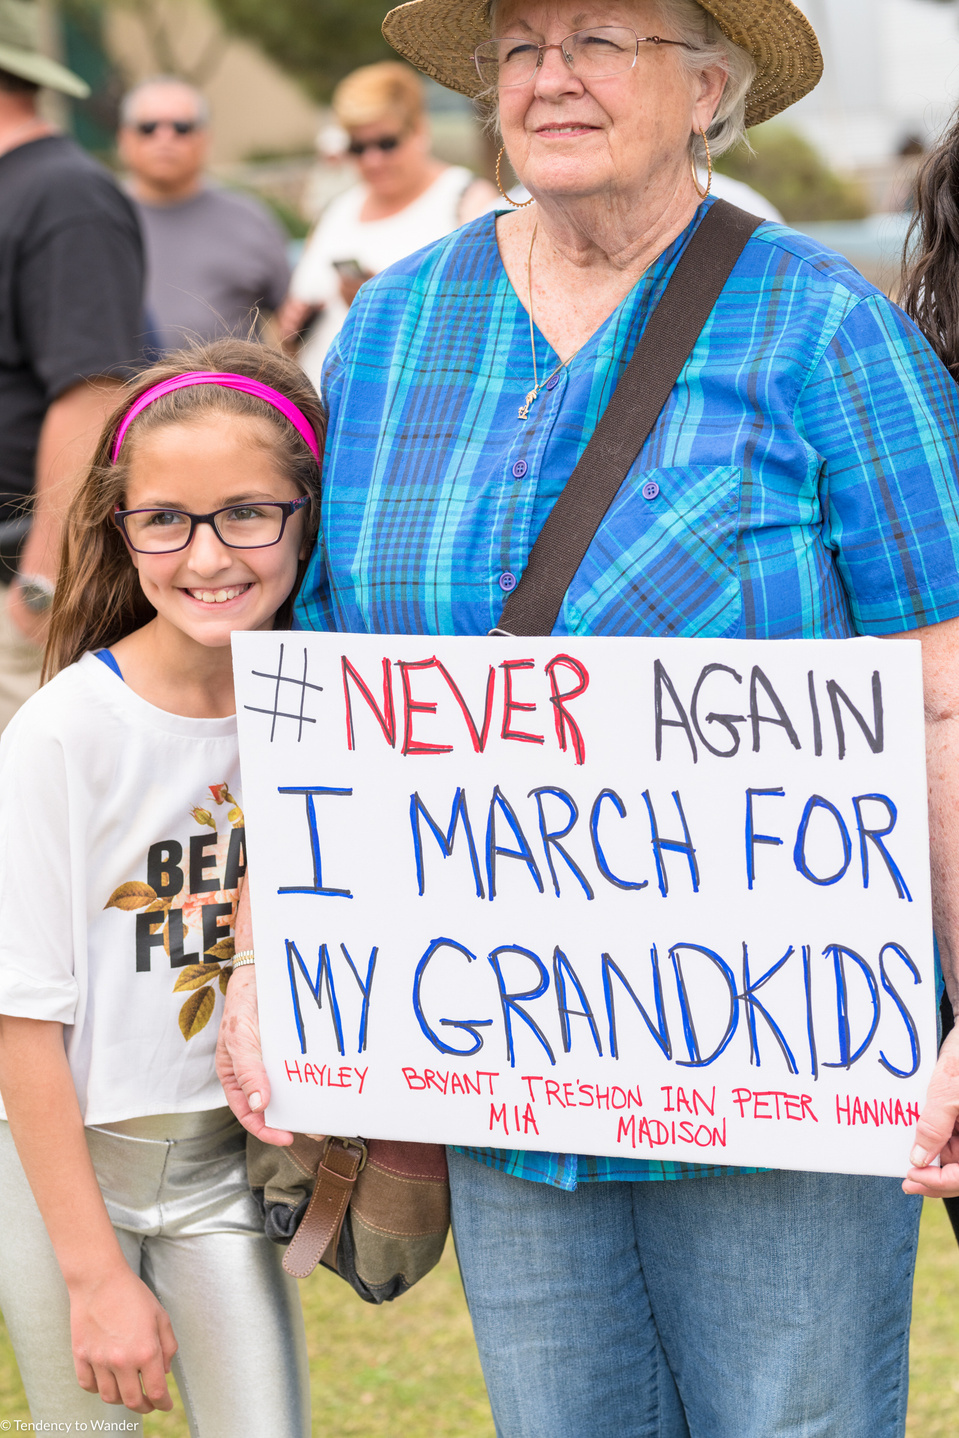 # NEVER AGAIN
I MARCH FOR
MY GRANDKIDS
HAYLEY BRYANT TRE'SHON IAN PETER HANNAH
MIA MADISON
BEA
FLE
© Tendency to Wander